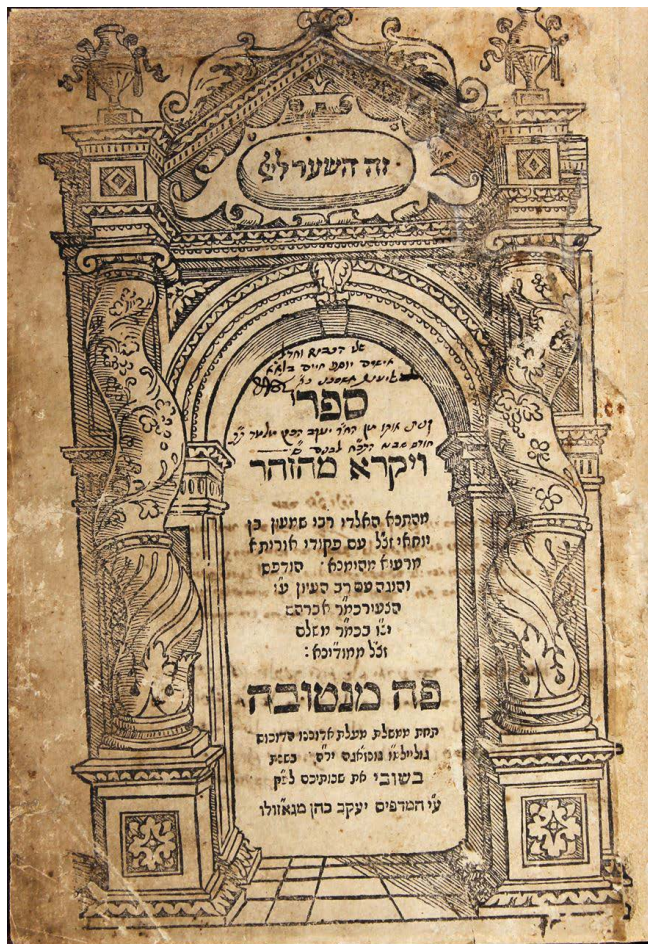 זה השער לי״י
ספר
ויקרא מהזהר
מהתנא האלדי רבי שמעון בן
יוחאי ז״ל עם פקודי אורית״א
מרעיא מהימנא: הודפס
והוגה עם רב העיון ע״י
הצעיר כמ״ר אברהם
יצ״ו בכמ״ר משלם
ז״ל ממודינא:
פה מנטובה
תחת ממשלת מעלת אדוננו הדוכוס
גולילמו גונזאגה יר״ה בשנת
בשובי את שבותיכם לפ״ק
ע״י המדפיס יעקב כהן מגאזולו